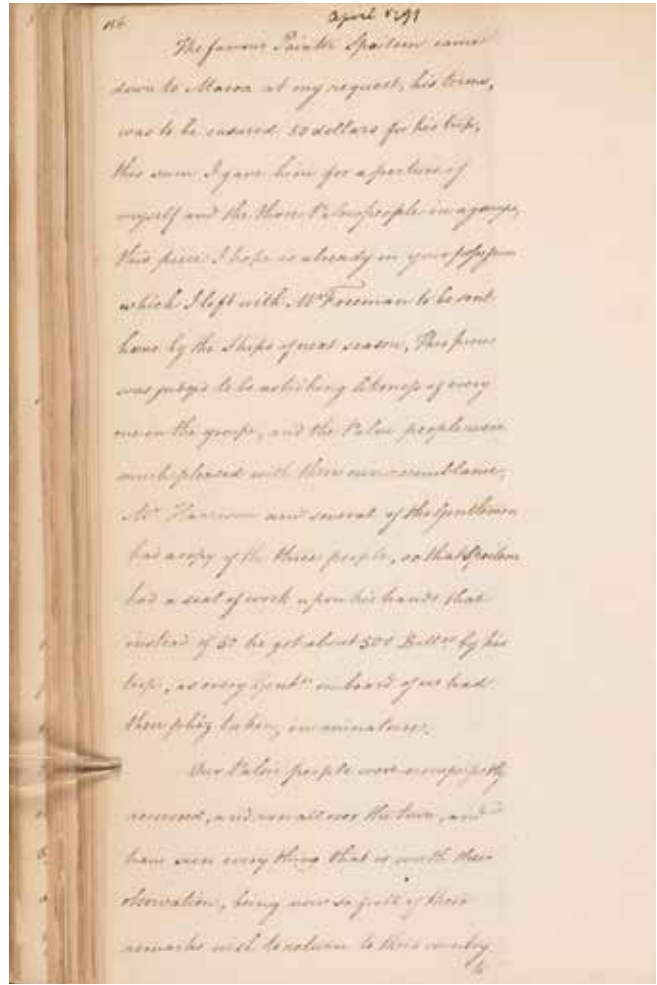 156
April 1791
The famous Painter Spoilum came
down to Macoa at my request, his terms,
was to be ensured 50 dollars for his trip,
this sum I gave him for a picture of
myself and the three Pelew people in a groupe,
this piece I hope is already in your possession
which I left with Mr Freeman to be sent
home by the Ships of next season, This piece
was judged to be a striking likeness of every
one in the groupe, and the Pelew people were
much pleased with their own resemblance,
Mr Harrison and several of the Gentlemen
had a copy of the three people, so that Spoilum
had a deal of work upon his hands that
instead of 50 he got about 500 Dollrs by his
trip, as every Gentn on board of us had
their phiz taken, in miniature.
Our Pelew people were
removed, and run all over the town, and
have seen every thing that is worth their
observation, being now so full of their
remarks wish to return to their country
to